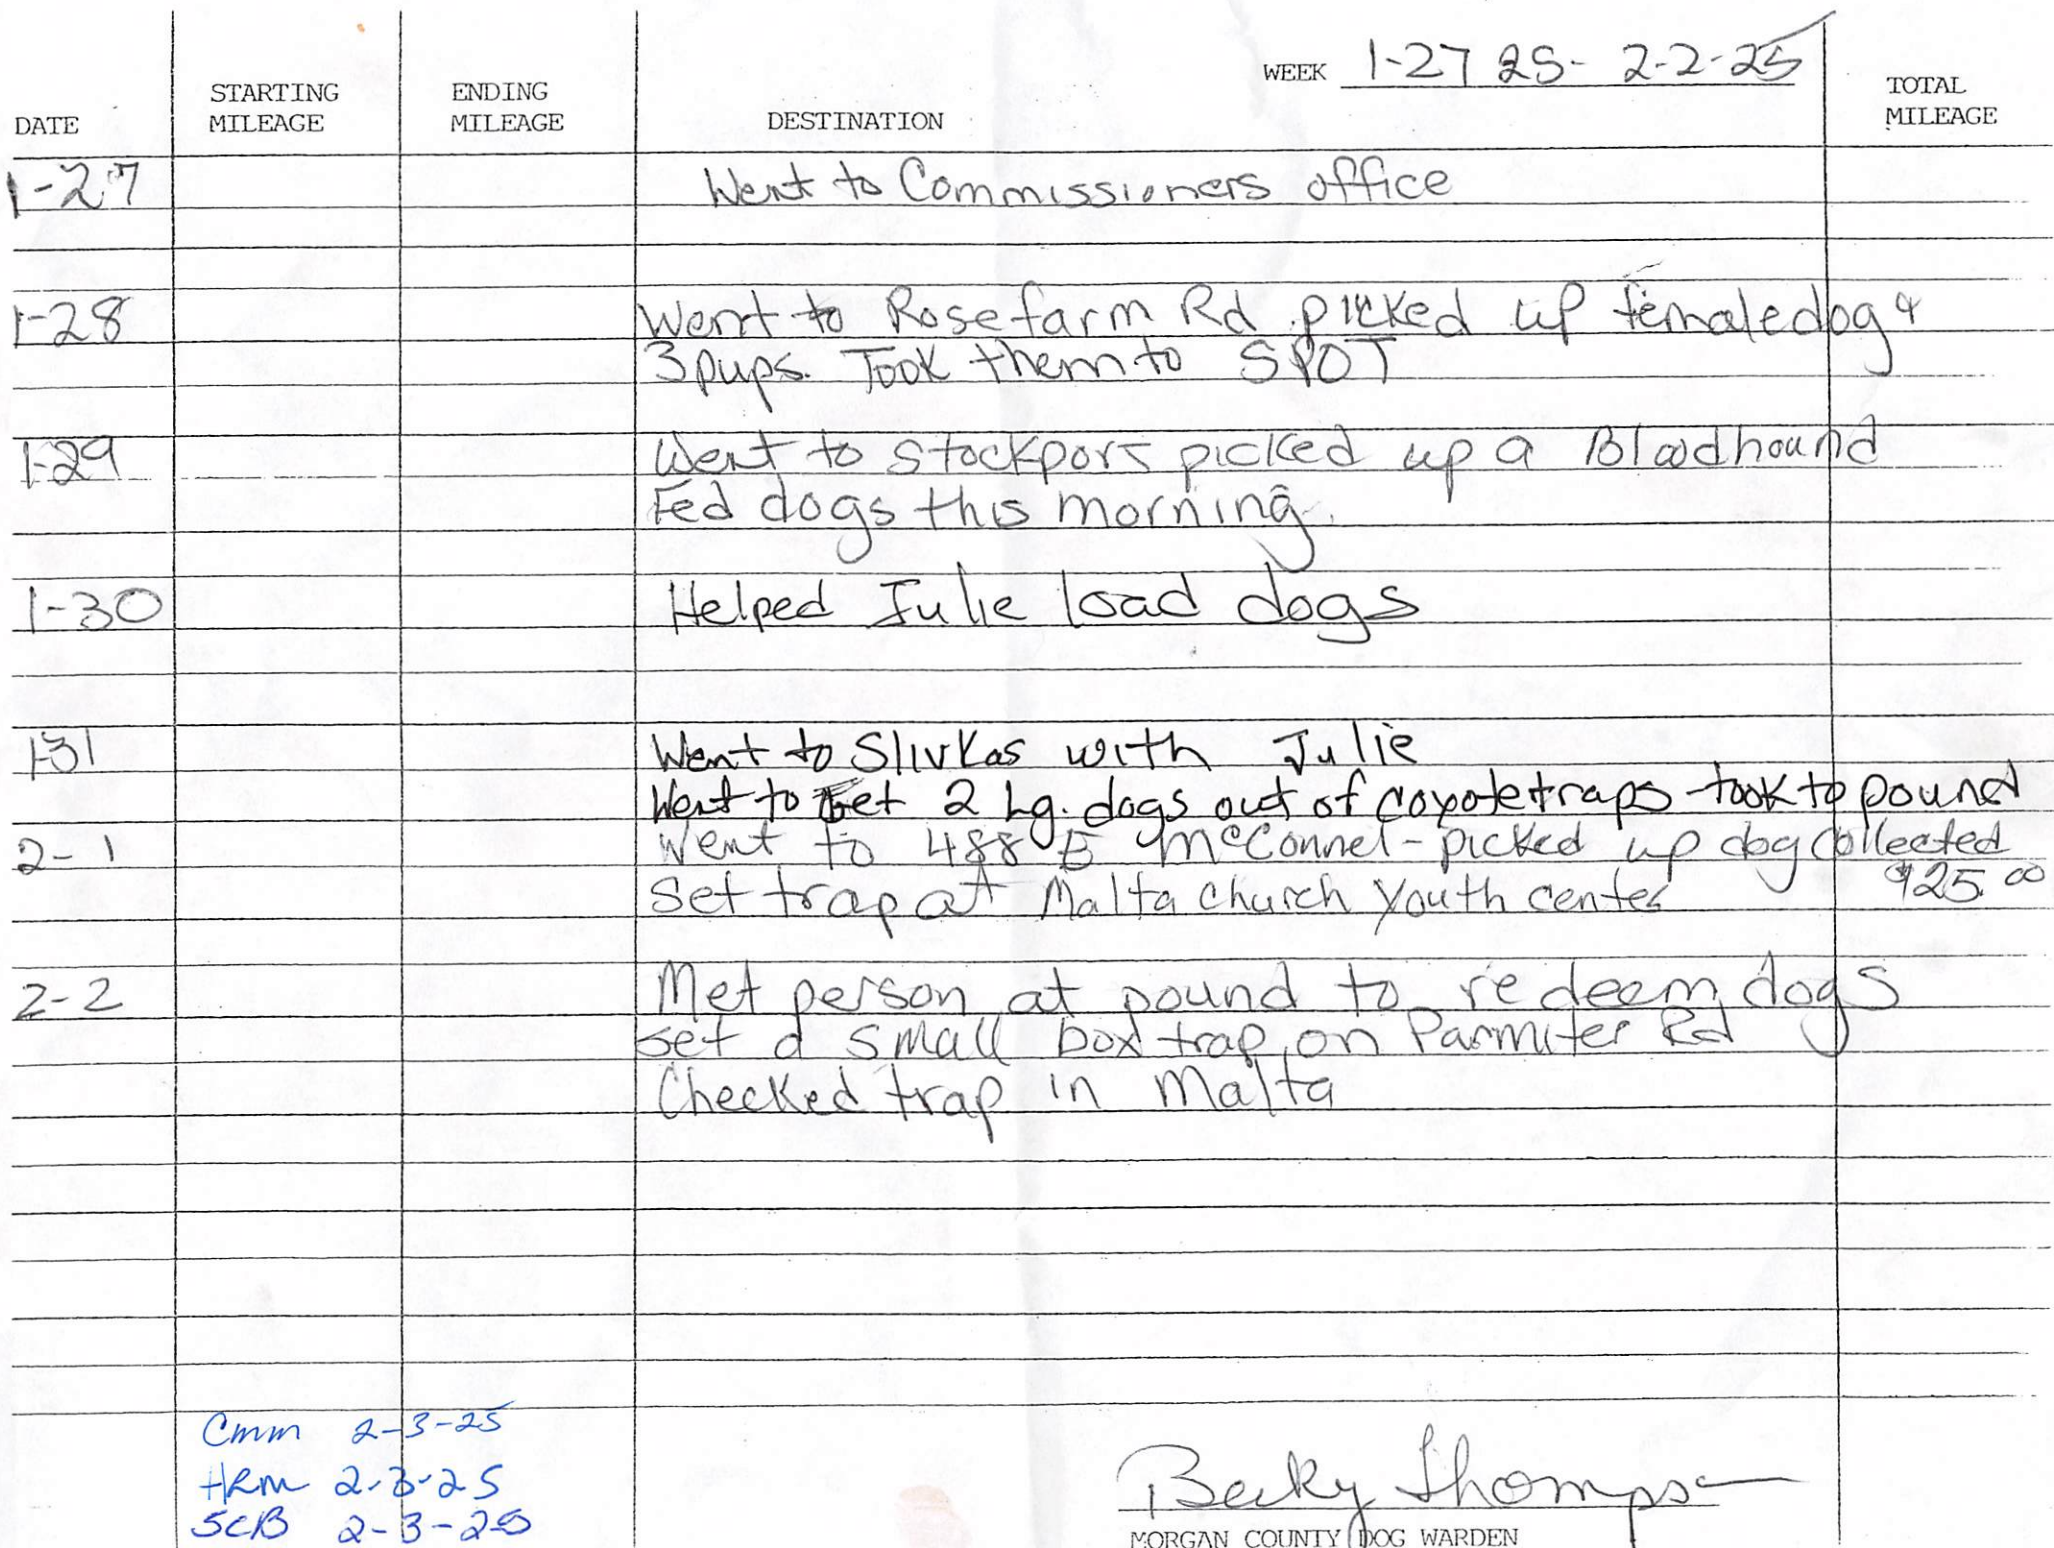 WEEK 1-27 25- 2-2-25
DATE STARTING MILEAGE ENDING MILEAGE DESTINATION TOTAL MILEAGE
1-27 Went to Commissioners office
1-28 Went to Rosefarm Rd picked up female dog &
3 pups. Took them to SPOT
1-29 Went to Stockport picked up a Bloodhound
Fed dogs this morning.
1-30 Helped Julie load dogs
1-31 Went to Slivkas with Julie
Went to Get 2 Lg. dogs out of coyote traps took to pound
2-1 Went to 488 E McConnel - picked up dog collected
Set trap at Malta church Youth center $25.00
2-2 Met person at pound to redeem dogs
set a small box trap on Parmiter Rd
Checked trap in Malta
Cmm 2-3-25
HRM 2-3-25
SCB 2-3-25
Becky Thompson
MORGAN COUNTY DOG WARDEN